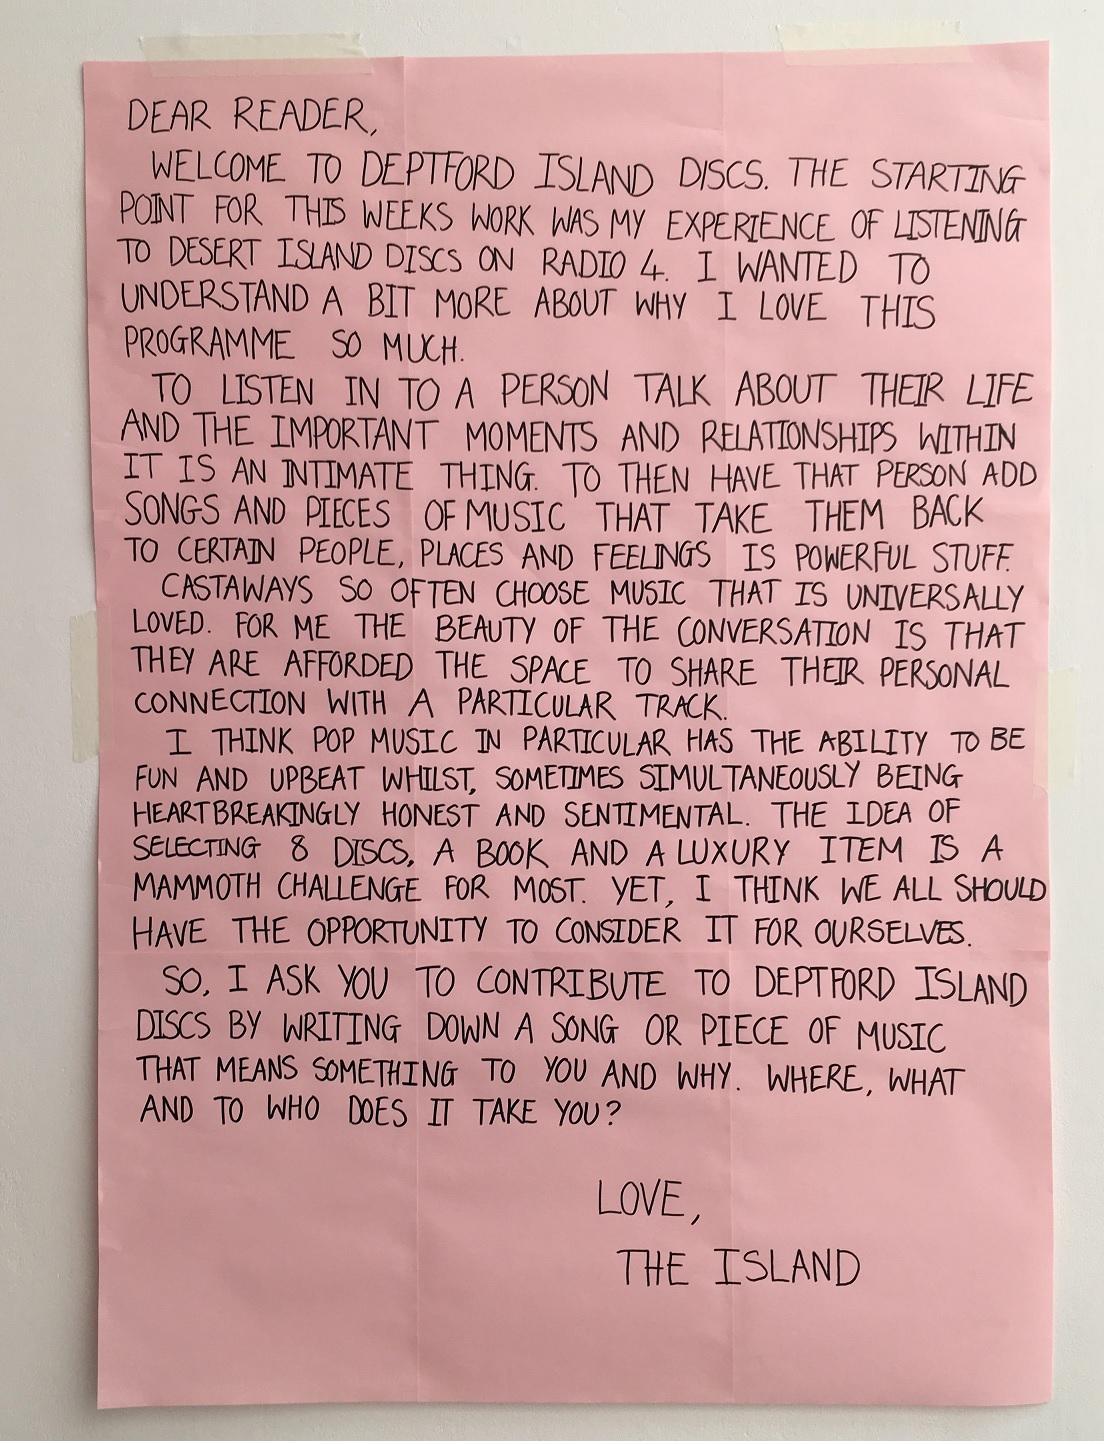 DEAR READER,
WELCOME TO DEPTFORD ISLAND DISCS. THE STARTING
POINT FOR THIS WEEKS WORK WAS MY EXPERIENCE OF LISTENING
TO DESERT ISLAND DISCS ON RADIO 4. I WANTED TO
UNDERSTAND A BIT MORE ABOUT WHY I LOVE THIS
PROGRAMME SO MUCH.
TO LISTEN IN TO A PERSON TALK ABOUT THEIR LIFE
AND THE IMPORTANT MOMENTS AND RELATIONSHIPS WITHIN
IT IS AN INTIMATE THING. TO THEN HAVE THAT PERSON ADD
SONGS AND PIECES OF MUSIC THAT TAKE THEM BACK
TO CERTAIN PEOPLE, PLACES AND FEELINGS IS POWERFUL STUFF.
CASTAWAYS SO OFTEN CHOOSE MUSIC THAT IS UNIVERSALLY
LOVED. FOR ME THE BEAUTY OF THE CONVERSATION IS THAT
THEY ARE AFFORDED THE SPACE TO SHARE THEIR PERSONAL
CONNECTION WITH A PARTICULAR TRACK.
I THINK POP MUSIC IN PARTICULAR HAS THE ABILITY TO BE
FUN AND UPBEAT WHILST, SOMETIMES SIMULTANEOUSLY BEING
HEARTBREAKINGLY HONEST AND SENTIMENTAL. THE IDEA OF
SELECTING 8 DISCS, A BOOK AND A LUXURY ITEM IS A
MAMMOTH CHALLENGE FOR MOST. YET, I THINK WE ALL SHOULD
HAVE THE OPPORTUNITY TO CONSIDER IT FOR OURSELVES.
SO, I ASK YOU TO CONTRIBUTE TO DEPTFORD ISLAND
DISCS BY WRITING DOWN A SONG OR PIECE OF MUSIC
THAT MEANS SOMETHING TO YOU AND WHY. WHERE, WHAT
AND TO WHO DOES IT TAKE YOU?
LOVE,
THE ISLAND